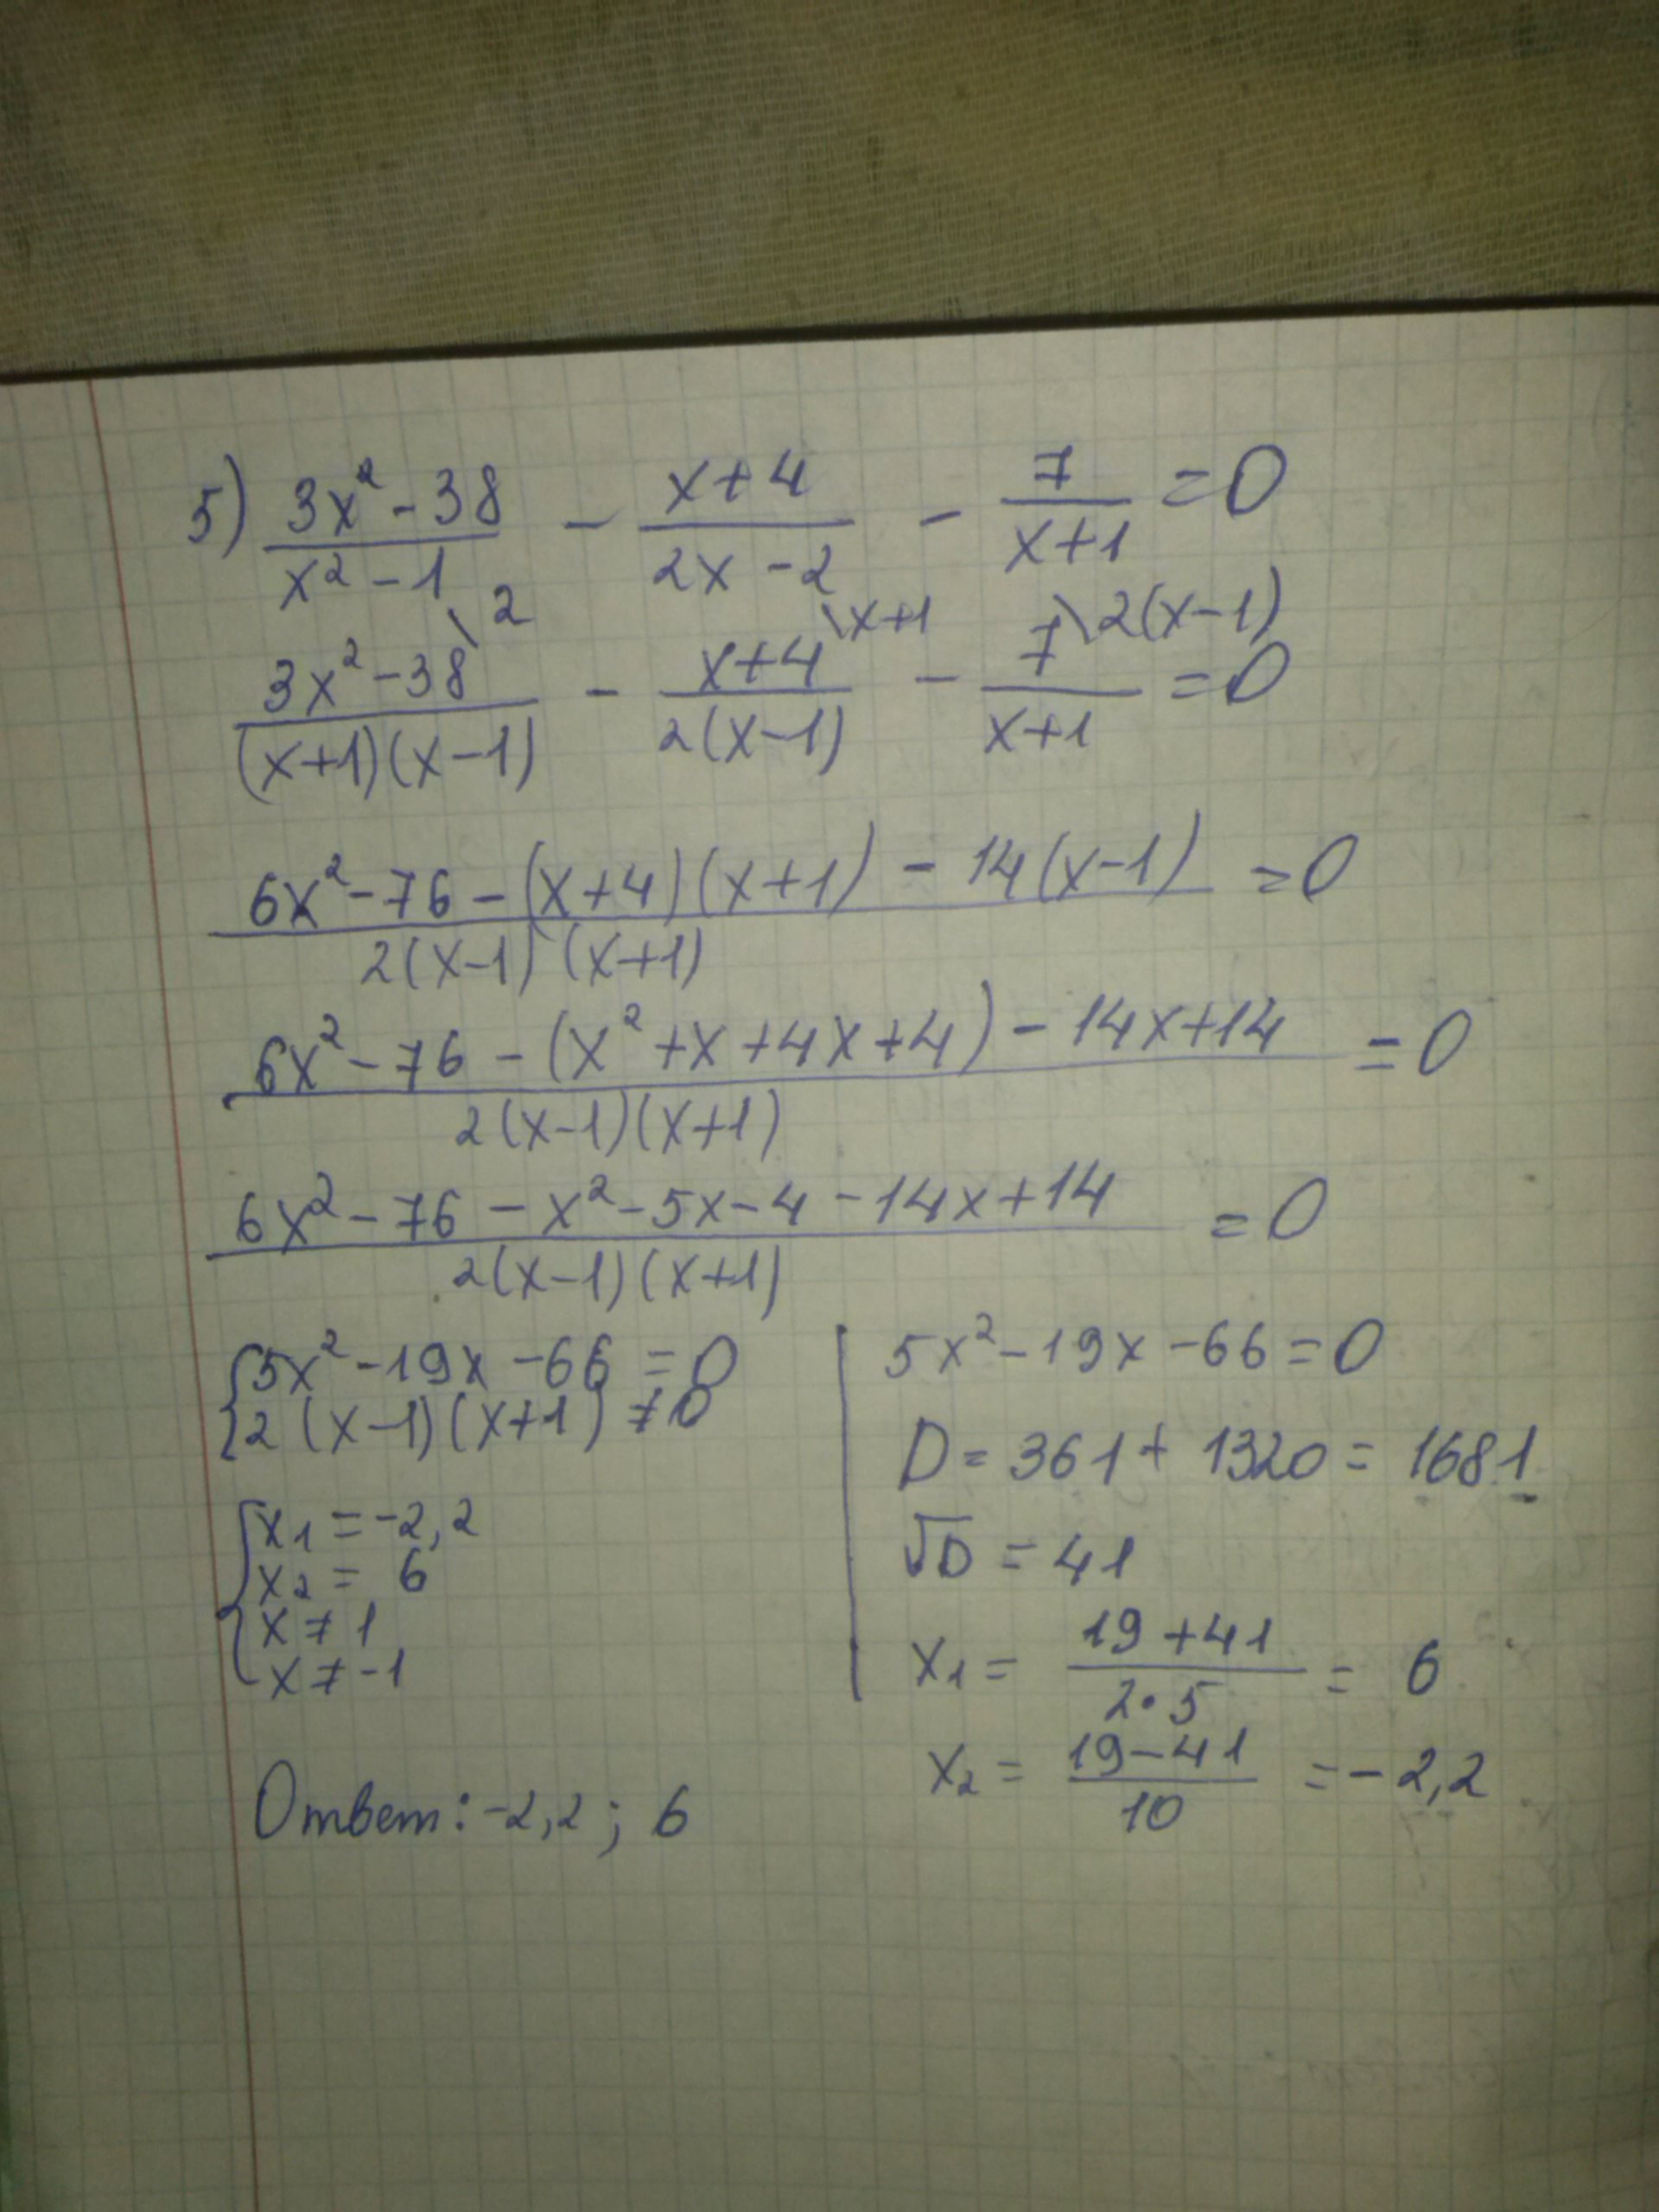 5) (3x² - 38)/(x² - 1) - (x+4)/(2x - 2) - 7/(x+1) = 0
(3x² - 38)\2/((x+1)(x-1)) - (x+4)\x+1/(2(x-1)) - 7\2(x-1)/(x+1) = 0
(6x² - 76 - (x+4)(x+1) - 14(x-1))/(2(x-1)(x+1)) = 0
(6x² - 76 - (x² + x + 4x + 4) - 14x + 14)/(2(x-1)(x+1)) = 0
(6x² - 76 - x² - 5x - 4 - 14x + 14)/(2(x-1)(x+1)) = 0
{5x² - 19x - 66 = 0
2(x-1)(x+1) ≠ 0
{x₁ = -2,2
x₂ = 6
x ≠ 1
x ≠ -1
Ответ: -2,2 ; 6
5x² - 19x - 66 = 0
D = 361 + 1320 = 1681
√D = 41
x₁ = (19 + 41)/(2·5) = 6
x₂ = (19 - 41)/10 = -2,2